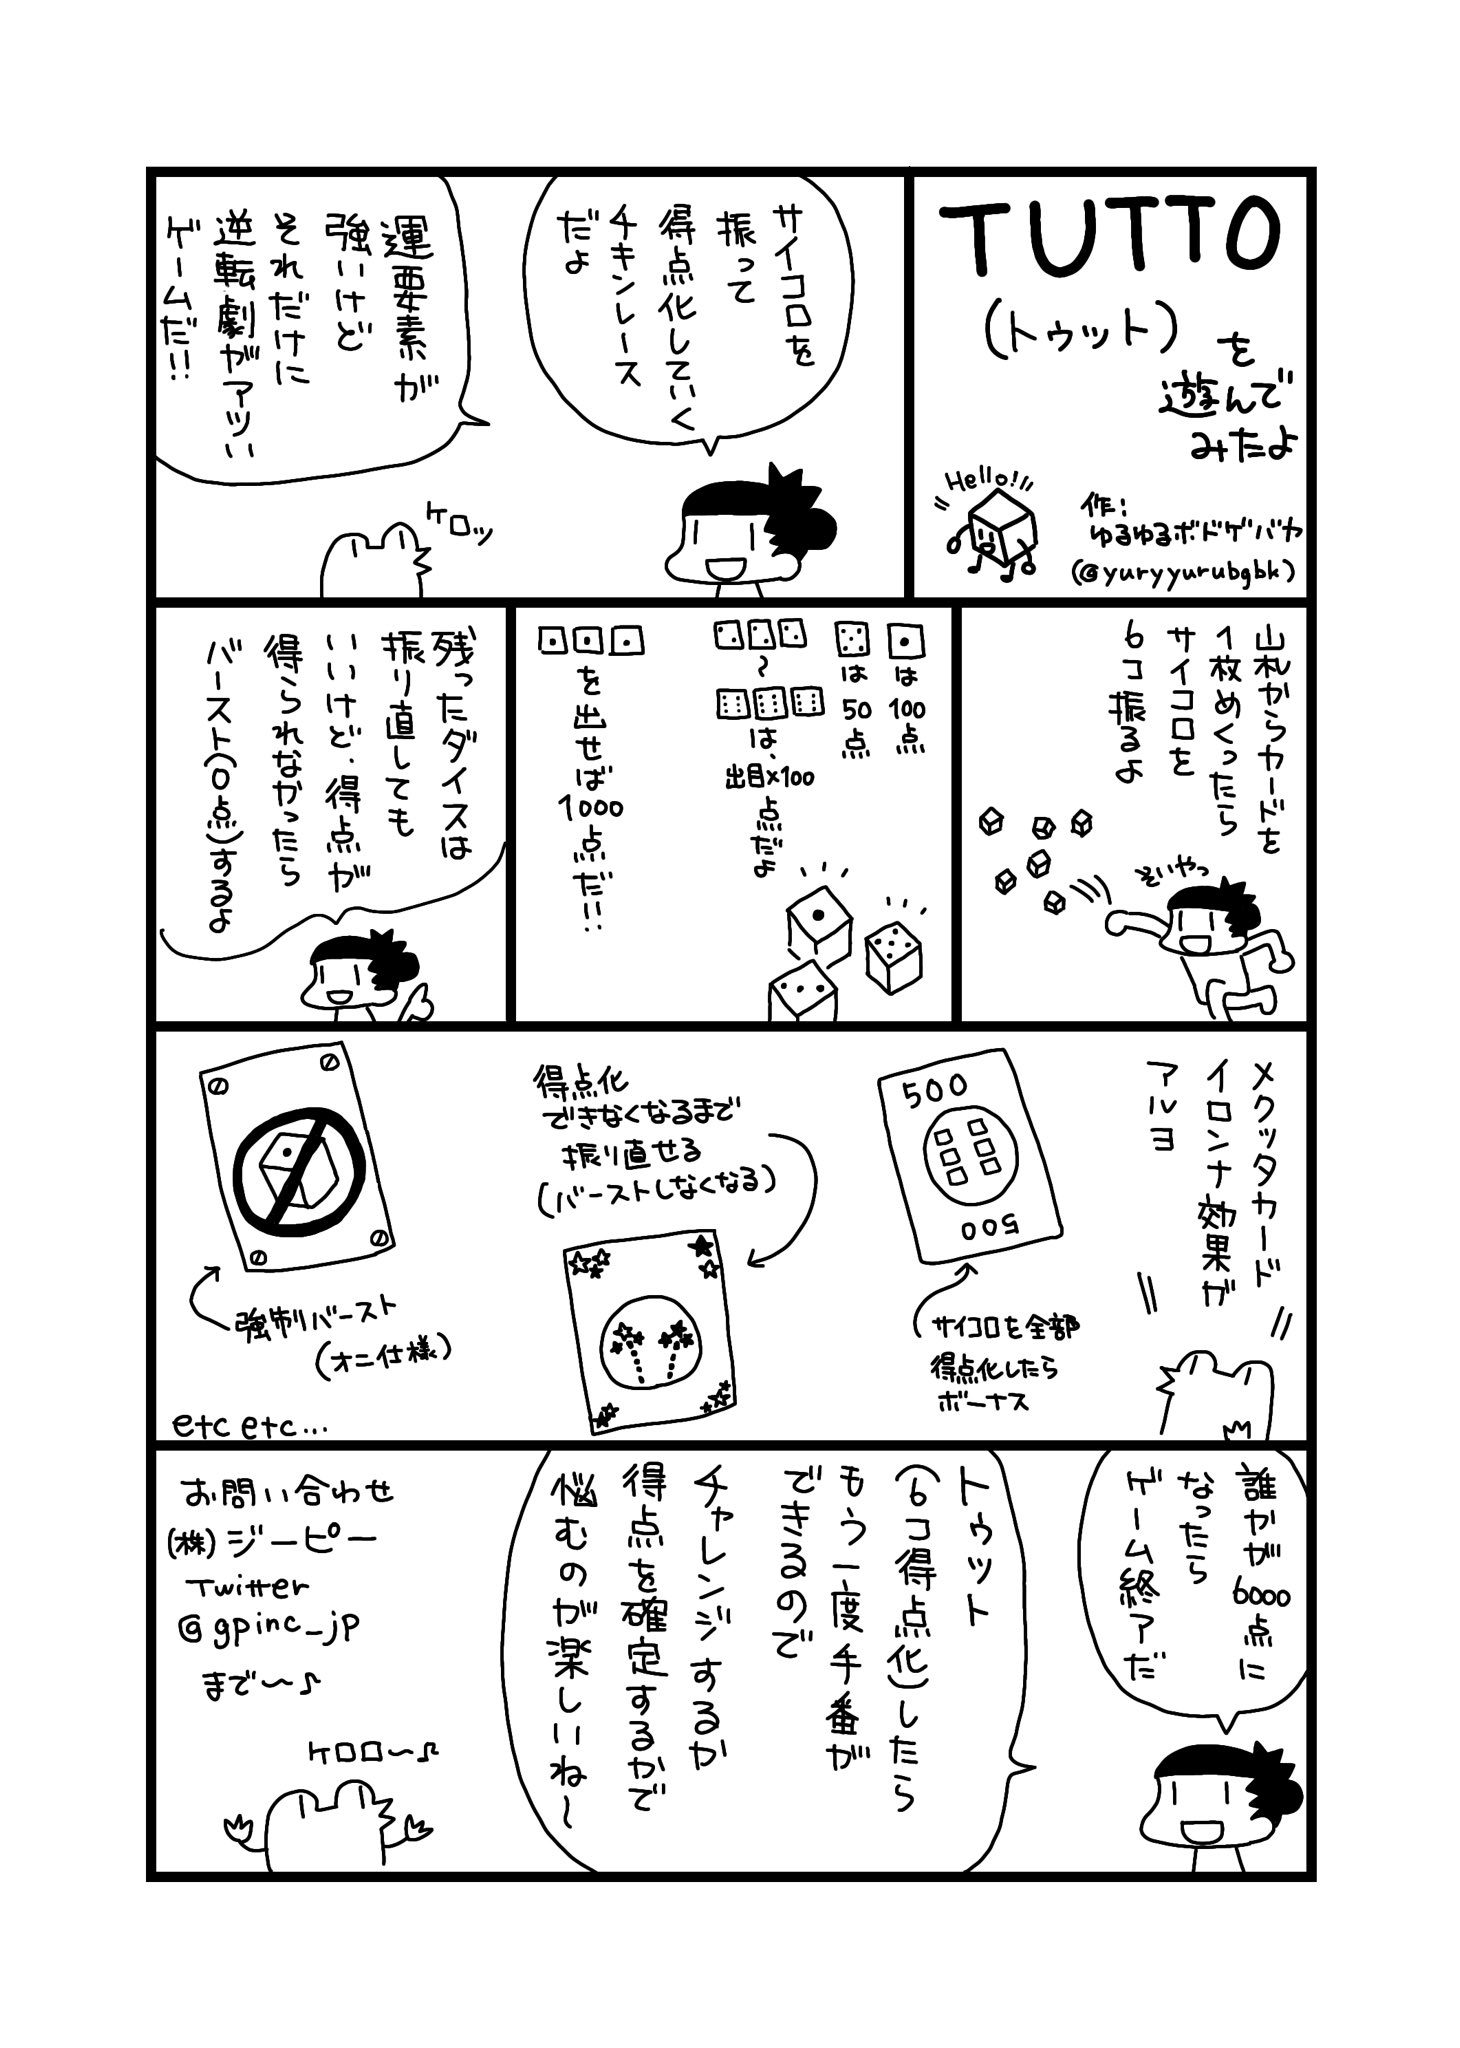 TUTTO
(トゥット)
を
遊んで
みたよ
Hello!
作：
ゆるゆるボドゲバヤ
(@yuryyurubgbk)
サイコロを
振って
得点化していく
チキンレース
だよ
運要素が
強いけど
それだけに
逆転劇がアツい
ゲームだ!!
ケロッ
山札からカードを
1枚めくったら
サイコロを
6コ振るよ
そいやっ
は100点
は50点
〜
は、出目×100点だよ
を出せば1000点だ!!
残ったダイスは
振り直しても
いいけど、得点が
得られなかったら
バースト(0点)するよ
メクッタカード
イロンナ効果が
アルヨ
500
500
サイコロを全部
得点化したら
ボーナス
得点化
できなくなるまで
振り直せる
(バーストしなくなる)
強制バースト
(オニ仕様)
etc etc...
誰かが6000点に
なったら
ゲーム終了だ
トゥット
(6コ得点化)したら
もう一度手番が
できるので
チャレンジするか
得点を確定するかで
悩むのが楽しいね〜
お問い合わせ
(株)ジーピー
Twitter
@gpinc_jp
まで〜♪
ケロロ〜♪